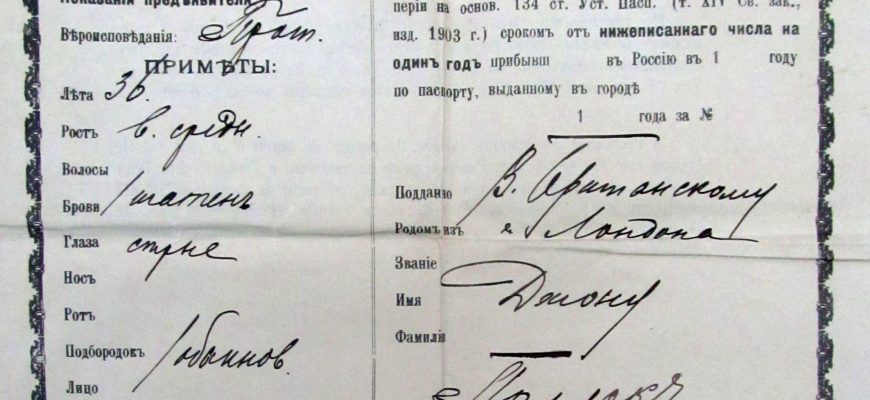 Показанія предъявителя
Вѣроисповѣданія: Прот.
ПРИМѢТЫ:
Лѣта 36.
Ростъ в. средн.
Волосы
Брови шатенъ
Глаза сѣрые
Носъ
Ротъ
Подбородокъ обыкнов.
Лицо
періи на основ. 134 ст. Уст. Пасп. (т. XIV Св. зак.,
изд. 1903 г.) срокомъ отъ нижеписаннаго числа на
одинъ годъ прибывш въ Россію въ 1 году
по паспорту, выданному въ городѣ
1 года за №
Подданно В. Британскому
Родомъ изъ Лондона
Званіе
Имя Джону
Фамилія